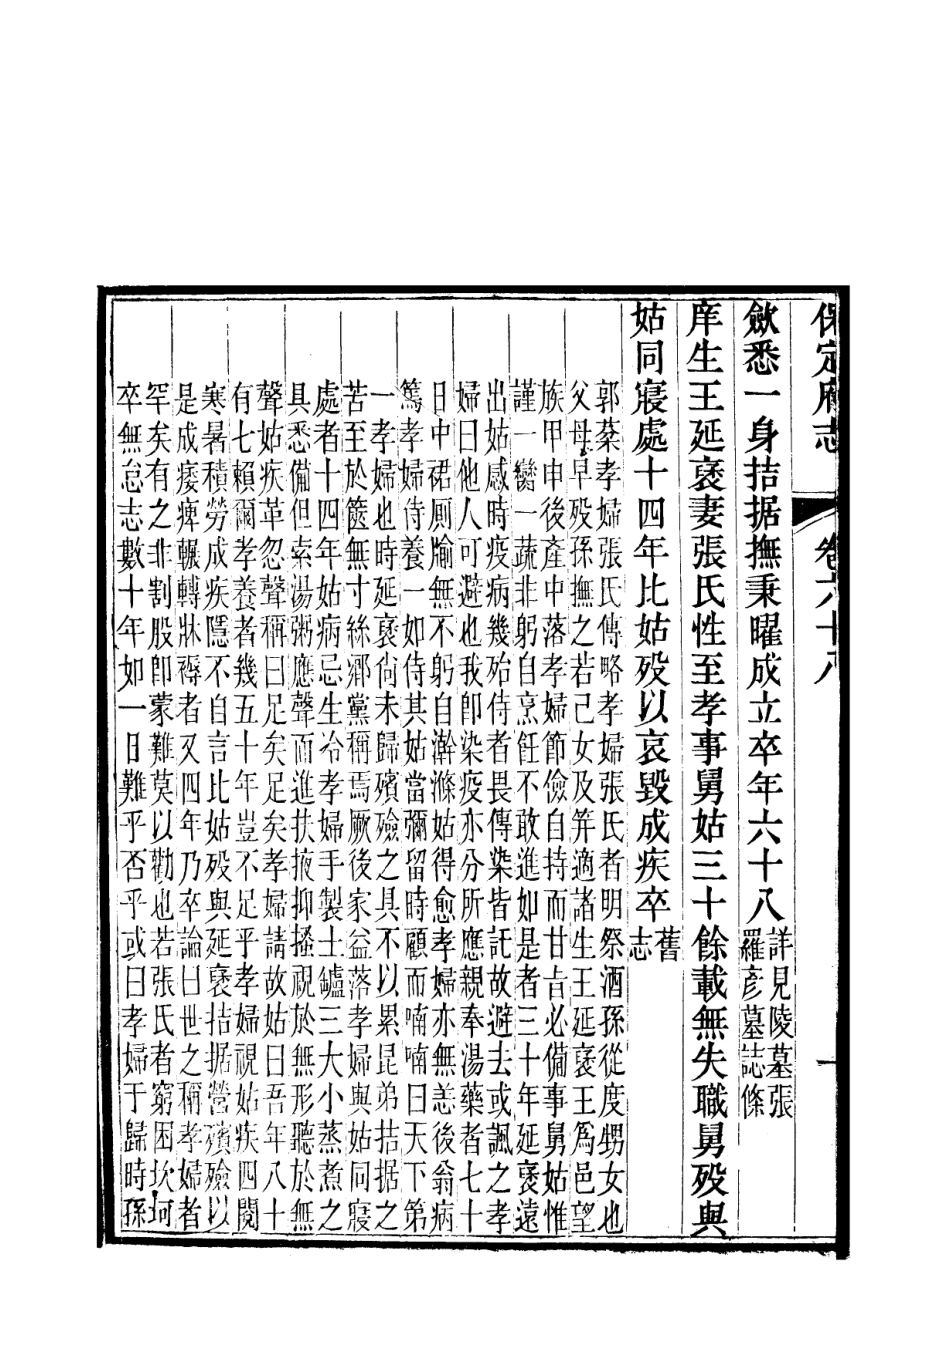 保定府志 卷六十八 一
歛悉一身拮据撫秉曜成立卒年六十八詳見陵墓張羅彥墓誌條
庠生王延褒妻張氏性至孝事舅姑三十餘載無失職舅歿與
姑同寢處十四年比姑歿以哀毀成疾卒舊志
郭棻孝婦張氏傳略孝婦張氏者明祭酒孫從度甥女也
父母早歿孫撫之若己女及笄適諸生王延褒王爲邑望
族甲申後產中落孝婦節儉自持而甘旨必備事舅姑惟
謹一臠一蔬非躬自烹飪不敢進如是者三十年延褒遠
出姑感時疫病幾殆侍者畏傳染皆託故避去或諷之孝
婦曰他人可避也我卽染疫亦分所應親奉湯藥者七十
日中裙厠牏無不躬自澣滌姑得愈孝婦亦無恙後翁病
篤孝婦侍養一如侍其姑當彌留時顧而喃喃曰天下第
一孝婦也時延褒尙未歸殯殮之具不以累昆弟拮据之
苦至於篋無寸絲鄉黨稱焉厥後家益落孝婦與姑同寢
處者十四年姑病忌生冷孝婦手製土鑪三大小蒸煮之
具悉備但索湯粥應聲而進扶掖抑搔視於無形聽於無
聲姑疾革忽聲稱曰足矣足矣孝婦請故姑曰吾年八十
有七賴爾孝養者幾五十年豈不足乎孝婦視姑疾四閱
寒暑積勞成疾隱不自言比姑歿與延褒拮据營殯殮以
是成痿痺輾轉牀褥者又四年乃卒論曰世之稱孝婦者
罕矣有之非割股卽蒙難莫以勸也若張氏者窮困坎坷
卒無怠志數十年如一日難乎否乎或曰孝婦于歸時孫